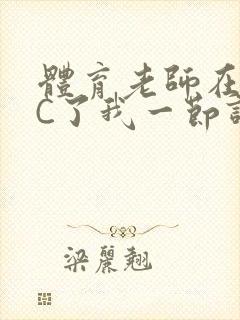 體育老師在
C了我一節
梁麗翹